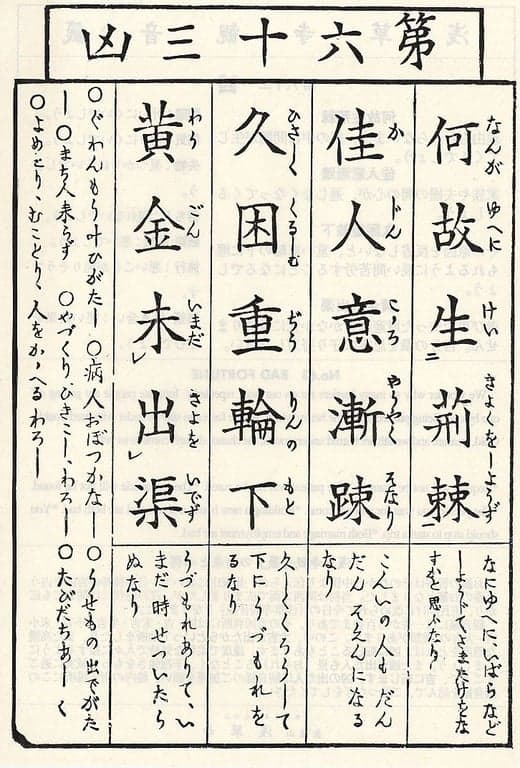 第六十三凶
なんがゆへにけいきよをしようず
何故生二荊棘一
なにゆへにいばらなど
しようじてさまたげをな
すやと思ふなり
かじんこゝろやゝそなり
佳人意漸踈
こゝろの人もだん
だんそえんになる
なり
ひさしくくるしむぢうりんのもと
久困重輪下
久しくくろくして
下にうづもれを
るなり
わうごんいまだきよをいでず
黄金未レ出レ渠
うづもれありていい
まだ時せついたら
ぬなり
〇ぐわんもう叶ひがたし〇病人おぼつかなし〇うせもの出でがた
し〇まち人来らず〇やづくりひきこしわろし〇たびだちあしく
〇よめとり、むことり、人をかゝへるわろし